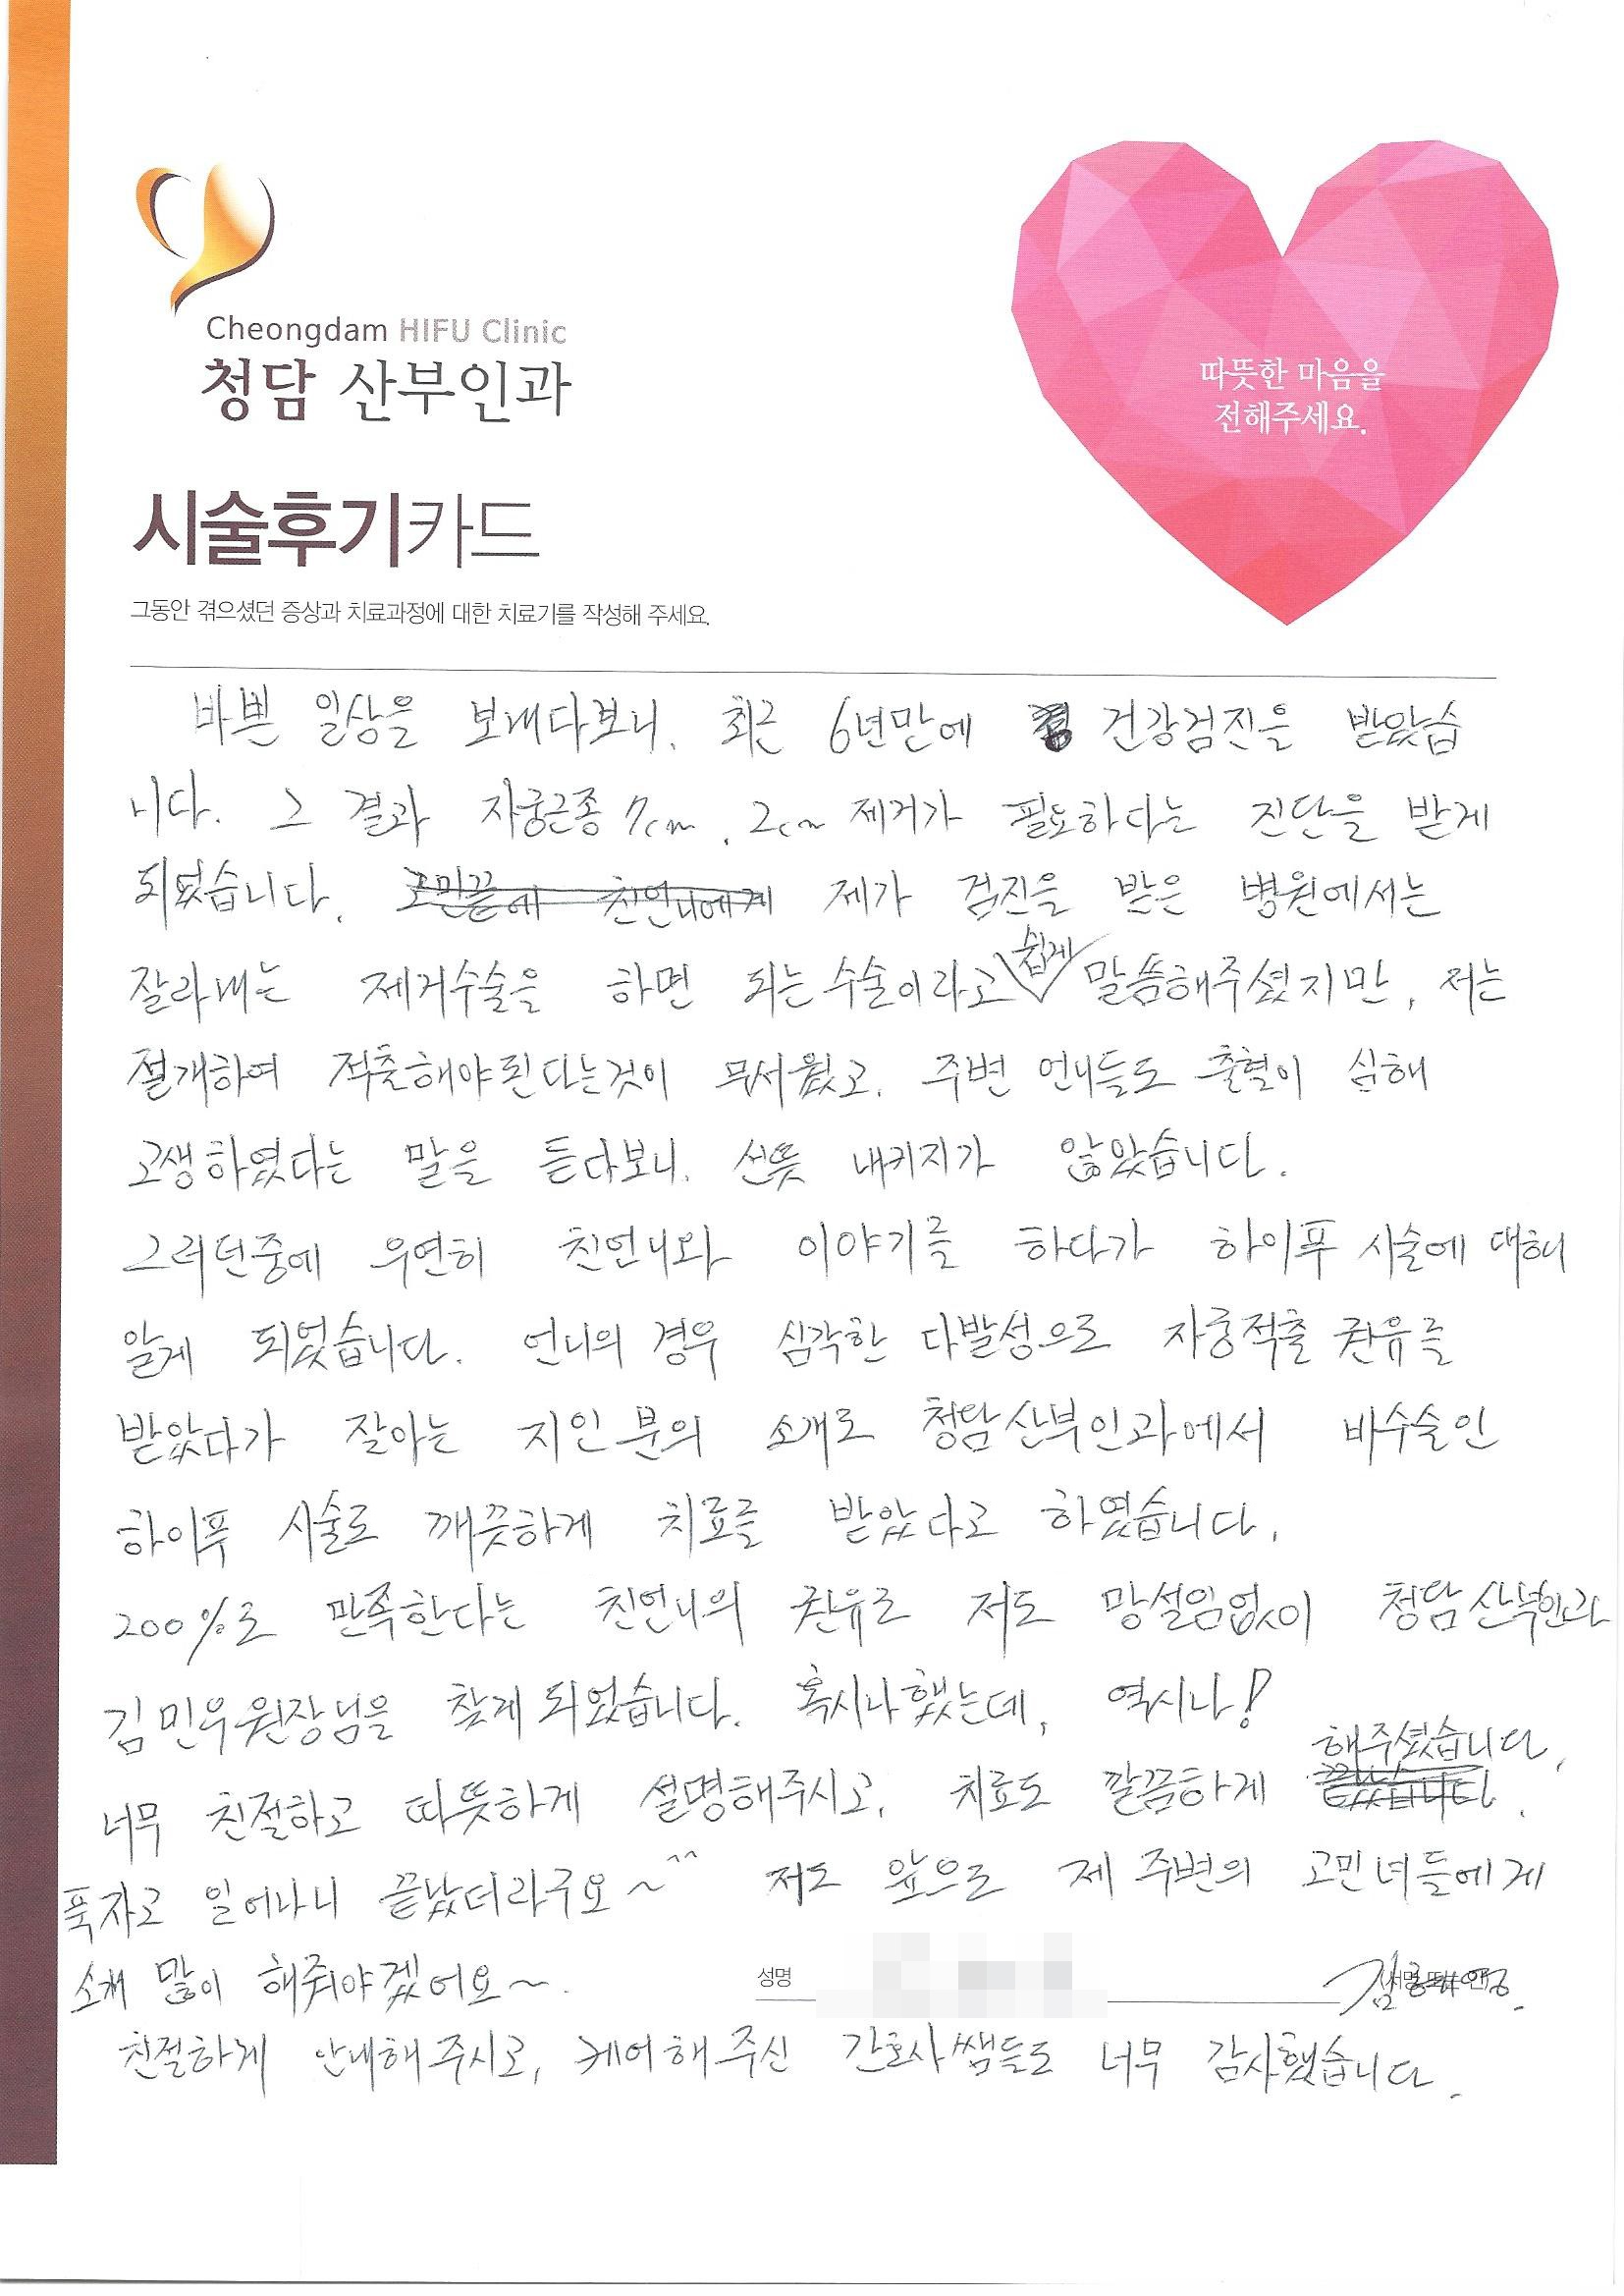 Cheongdam HIFU Clinic
청담 산부인과
따뜻한 마음을
전해주세요.
시술후기카드
그동안 겪으셨던 증상과 치료과정에 대한 치료기를 작성해 주세요.
바쁜 일상을 보내다보니, 최근 6년만에 건강검진을 받았습
니다. 그 결과 자궁근종 7cm, 2cm 제거가 필요하다는 진단을 받게
되었습니다. 고민끝에 친언니에게 제가 검진을 받은 병원에서는
잘라내는 제거수술을 하면 되는 수술이라고 쉽게 말씀해주셨지만, 저는
절개하여 적출해야된다는것이 무서웠고, 주변 언니들도 출혈이 심해
고생하였다는 말을 듣다보니, 선뜻 내키지가 않았습니다.
그러던중에 우연히 친언니와 이야기를 하다가 하이푸 시술에 대해
알게 되었습니다. 언니의 경우 심각한 다발성으로 자궁적출 권유를
받았다가 잘아는 지인분의 소개로 청담산부인과에서 비수술인
하이푸 시술로 깨끗하게 치료를 받았다고 하였습니다.
200%로 만족한다는 친언니의 권유로 저도 망설임없이 청담산부인과
김민우원장님을 찾게 되었습니다. 혹시나했는데, 역시나!
너무 친절하고 따뜻하게 설명해주시고, 치료도 깔끔하게 해주셨습니다.
푹자고 일어나니 끝났더라구요~^^ 저도 앞으로 제 주변의 고민녀들에게
소개 많이 해줘야겠어요~.
성명
친절하게 안내해주시고, 케어해주신 간호사쌤들도 너무 감사했습니다.